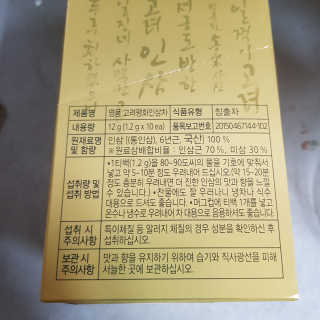 제품명 명품 고려광화인삼차 식품유형 침출차
내용량 12 g (1.2 g x 10 ea) 품목보고번호 20150467144-102
원재료명 및 함량 인삼 [(통인삼), 6년근, 국산] 100 %
※ 원료삼배합비율 : 인삼근 70 %, 미삼 30 %
섭취량 및 섭취 방법
•1티백(1.2 g)을 80~90도씨의 물을 기호에 맞춰서
넣고 약 5~10분 정도 우려내어 드십시오(약 15~20분
정도 충분히 우려내면 더 진한 인삼의 맛과 향을 느낄
수 있습니다.) •찬물에도 잘 우러나니 냉차나 식수
대용으로 드셔도 좋습니다. •머그컵에 티백 1개를 넣고
온수나 냉수로 우려내어 차 대용으로 드셔도 좋습니다.
섭취 시 주의사항
특이체질 등 알러지 체질의 경우 성분을 확인하신 후
섭취하십시오.
보관 시 주의사항
맛과 향을 유지하기 위하여 습기와 직사광선을 피해
서늘한 곳에 보관하십시오.